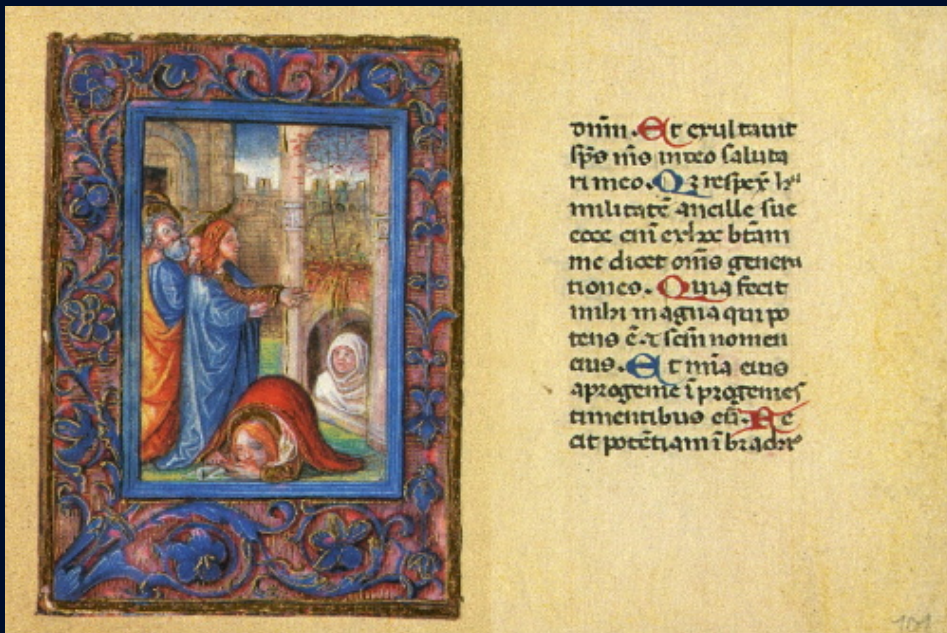 dnm. Et exultauit
sps ms in deo saluta
ri meo. Qz respex hu
militate ancille sue
ecce eni ex hoc btam
me dicet oms genera
tiones. Quia fecit
mihi magna qui po
tens e. & scm nomen
eius. Et mia eius
a progenie i progenies
timentibus eu. Fe
cit potetiam i brachio
101